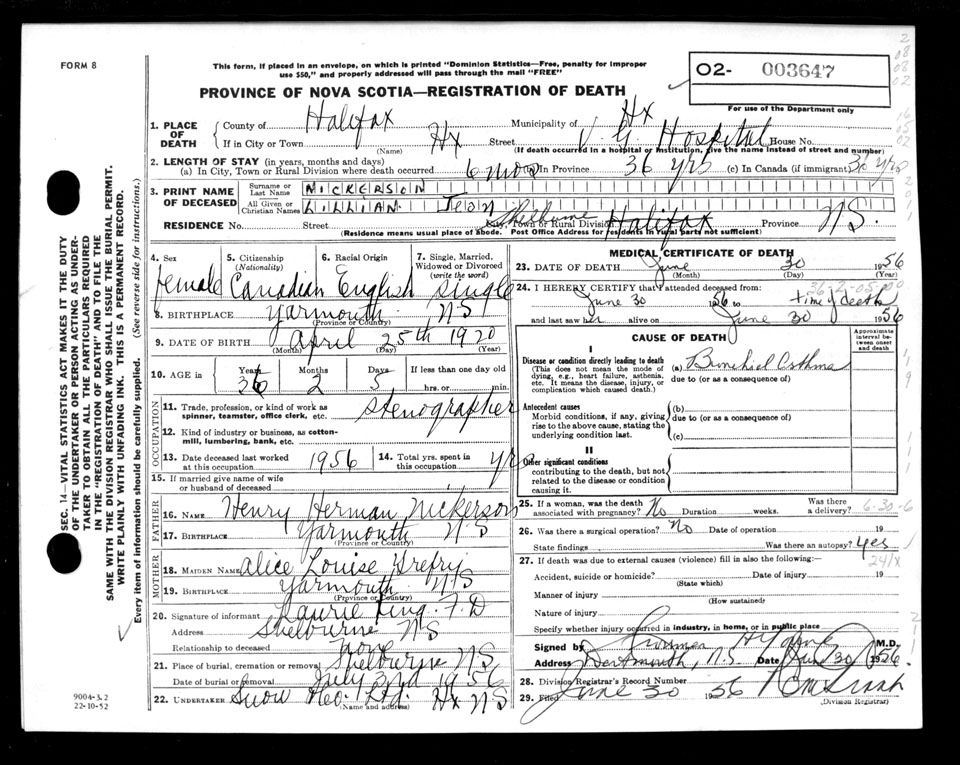 FORM 8
This form, if placed in an envelope, on which is printed "Dominion Statistics—Free, penalty for improper
use $50," and properly addressed will pass through the mail "FREE"
PROVINCE OF NOVA SCOTIA—REGISTRATION OF DEATH
O2- 003647
For use of the Department only
1. PLACE OF DEATH
County of Halifax Municipality of Hx
If in City or Town Hx Street V. G. Hospital House No.
(Name) (If death occurred in a hospital or institution, give the name instead of street and number)
2. LENGTH OF STAY (in years, months and days)
(a) In City, Town or Rural Division where death occurred 6 mos In Province 36 yrs (c) In Canada (if immigrant) 36 yrs
3. PRINT NAME OF DECEASED
Surname or Last Name NICKERSON
All Given or Christian Names LILLIAN. Jean
RESIDENCE No. Street Shelburne City, Town or Rural Division Halifax Province N.S.
(Residence means usual place of abode. Post Office Address for residents in rural parts not sufficient)
4. Sex female
5. Citizenship (Nationality) Canadian
6. Racial Origin English
7. Single, Married, Widowed or Divorced (write the word) single
8. BIRTHPLACE Yarmouth N.S
(Province or Country)
9. DATE OF BIRTH April 25th 1920
(Month) (Day) (Year)
10. AGE in Years 36 Months 2 Days 5 If less than one day old hrs. or min.
OCCUPATION
11. Trade, profession, or kind of work as spinner, teamster, office clerk, etc. Stenographer
12. Kind of industry or business, as cotton-mill, lumbering, bank, etc.
13. Date deceased last worked at this occupation 1956
14. Total yrs. spent in this occupation yrs
15. If married give name of wife or husband of deceased
FATHER
16. NAME Henry Herman Nickerson
17. BIRTHPLACE Yarmouth N S
(Province or Country)
MOTHER
18. MAIDEN NAME Alice Louise Grefry
19. BIRTHPLACE Yarmouth N S
(Province or Country)
20. Signature of informant Laurie King. F. D
Address Shelbourne N S
Relationship to deceased none
21. Place of burial, cremation or removal Shelbourne N S
Date of burial or removal July 2nd 1956
22. UNDERTAKER Snow Co. Ltd. Hx N S
(Name and address)
MEDICAL CERTIFICATE OF DEATH
23. DATE OF DEATH June 30 1956
(Month) (Day) (Year)
24. I HEREBY CERTIFY that I attended deceased from:
June 30 1956 to time of death
and last saw her alive on June 30 1956
CAUSE OF DEATH
Approximate interval between onset and death
I
Disease or condition directly leading to death
(This does not mean the mode of dying, e.g., heart failure, asthenia, etc. It means the disease, injury, or complication which caused death.)
(a) Bronchial Asthma
due to (or as a consequence of)
Antecedent causes
Morbid conditions, if any, giving rise to the above cause, stating the underlying condition last.
(b)
due to (or as a consequence of)
(c)
II
Other significant conditions
contributing to the death, but not related to the disease or condition causing it.
25. If a woman, was the death associated with pregnancy? No Duration weeks. Was there a delivery? 6-30-6
26. Was there a surgical operation? No Date of operation 19
State findings Was there an autopsy? yes
27. If death was due to external causes (violence) fill in also the following:
241X
Accident, suicide or homicide? Date of injury 19
(State which)
Manner of injury
(How sustained)
Nature of injury
Specify whether injury occurred in industry, in home, or in public place
Signed by M.D.
Address Dartmouth, N.S. Date June 30 1956.
28. Division Registrar's Record Number
29. Filed June 30 1956
(Division Registrar)
SEC. 14—VITAL STATISTICS ACT MAKES IT THE DUTY
OF THE UNDERTAKER OR PERSON ACTING AS UNDER-
TAKER TO OBTAIN ALL THE PARTICULARS REQUIRED
IN THE "REGISTRATION OF DEATH" AND TO FILE THE
SAME WITH THE DIVISION REGISTRAR WHO SHALL ISSUE THE BURIAL PERMIT.
WRITE PLAINLY WITH UNFADING INK. THIS IS A PERMANENT RECORD.
Every item of information should be carefully supplied. (See reverse side for instructions.)
9004-3.2
22-10-52